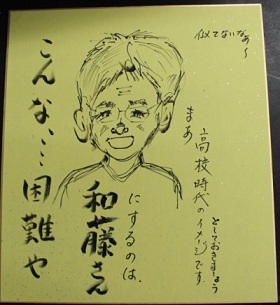 似てないなぁ〜
まあ
高校時代のイメージです
としておきましょう
和藤さん
にするのは、
こんな、…困難や